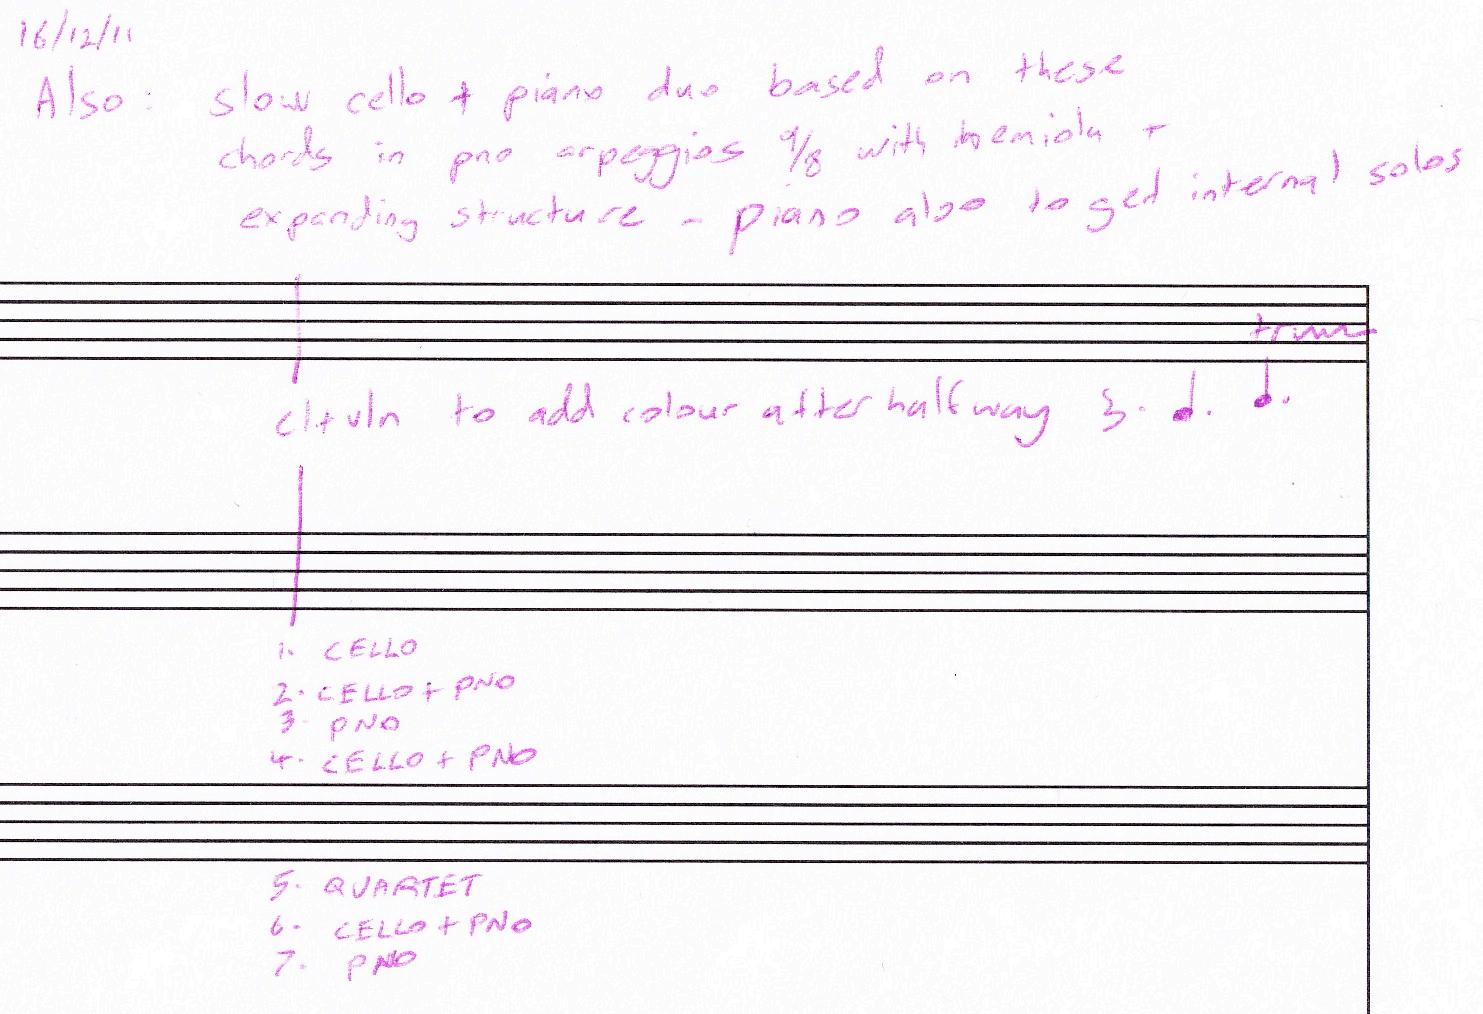 16/12/11
Also: slow cello + piano duo based on these
chords in pno arpeggios 9/8 with hemiola +
expanding structure - piano also to get internal solos
tr
cl+vln to add colour after halfway
1. CELLO
2. CELLO + PNO
3. PNO
4. CELLO + PNO
5. QUARTET
6. CELLO + PNO
7. PNO